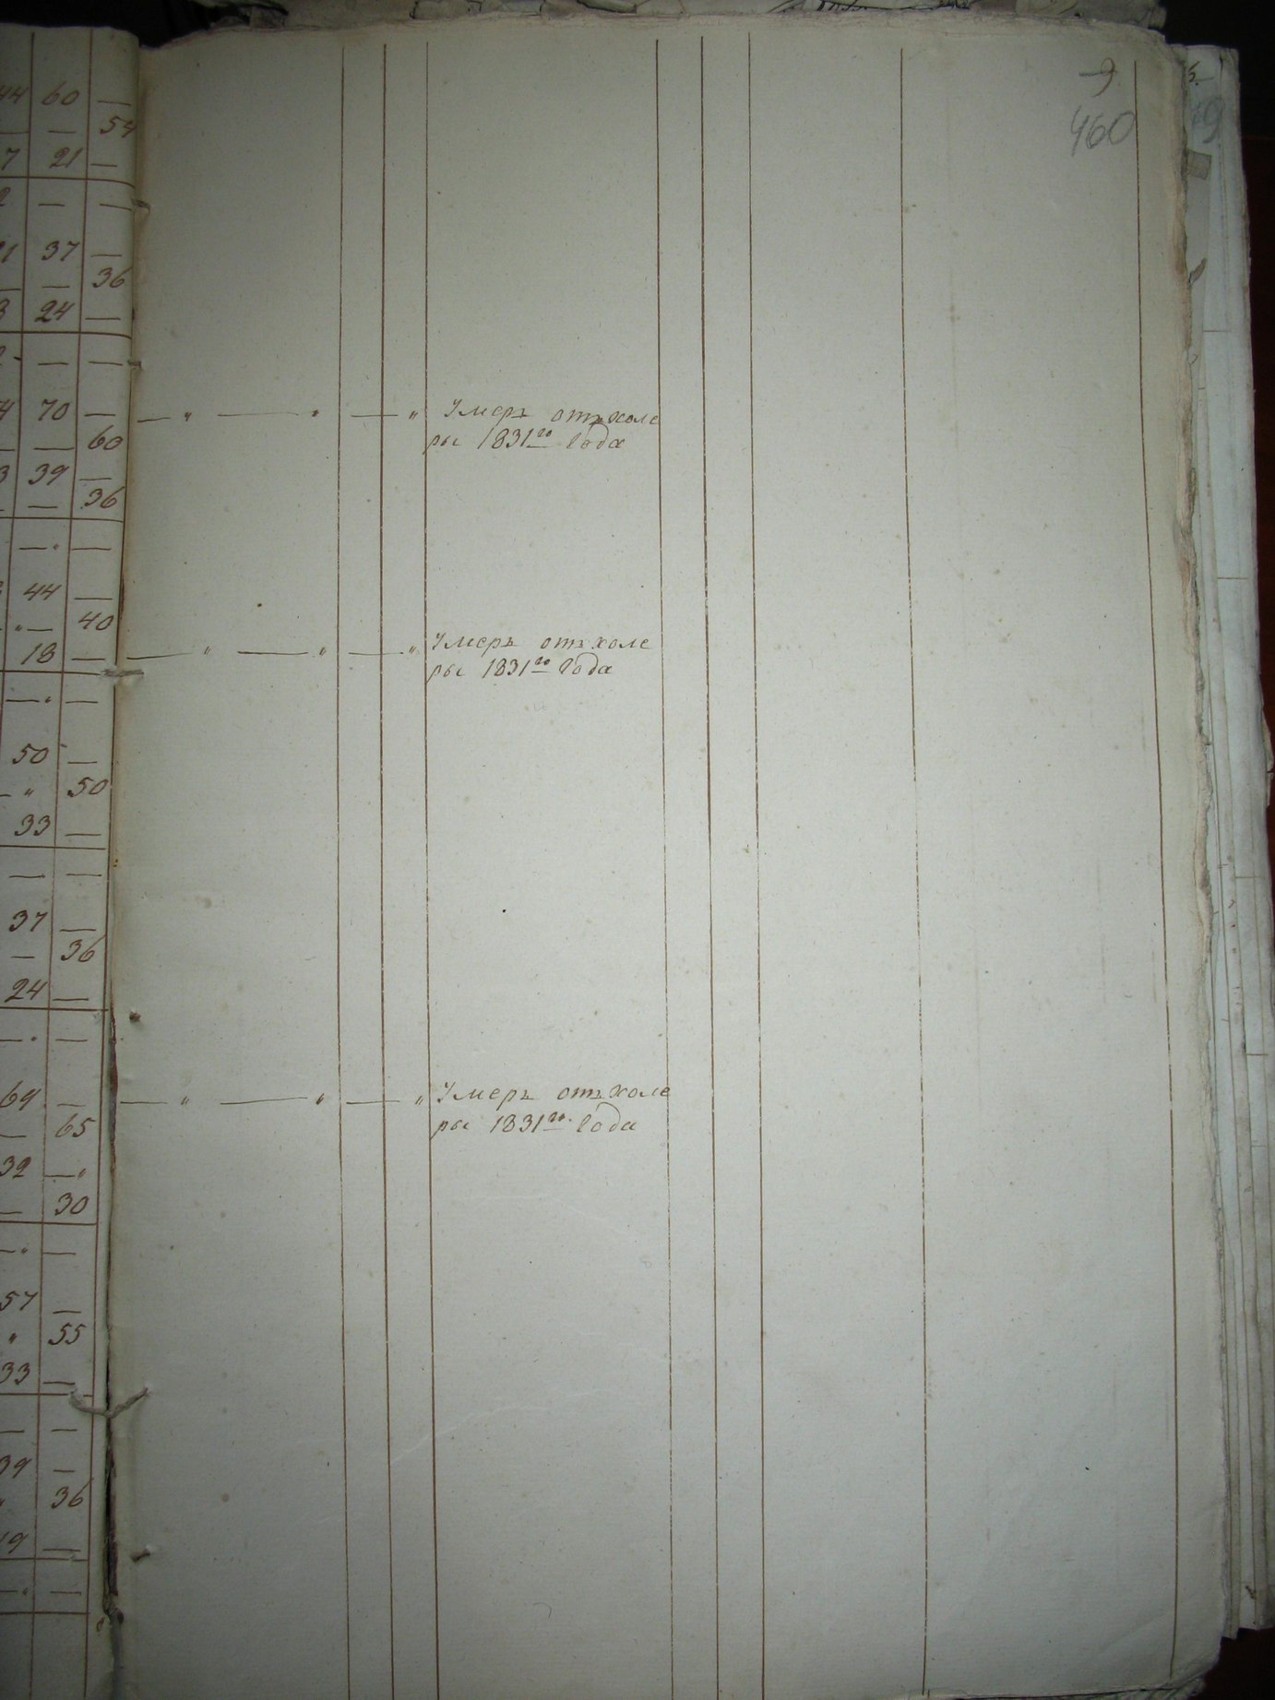 9
460
44 60 —
— — 54
7 21 —
2 — —
21 37 —
— — 36
3 24 —
— —
4 70 —
— — 60
3 39 —
— 36
— —
44 —
— 40
18 —
— —
50 —
— " 50
33 —
— —
37 —
— 36
24 —
— —
69 —
— 65
32 —
— 30
— —
57 —
" 55
33 —
— —
39 —
" 36
19 —
— —
— " — " — " Умеръ отъ холе
ры 1831го года
— " — " — " Умеръ отъ холе
ры 1831го года
— " — " — " Умеръ отъ холе
ры 1831го года